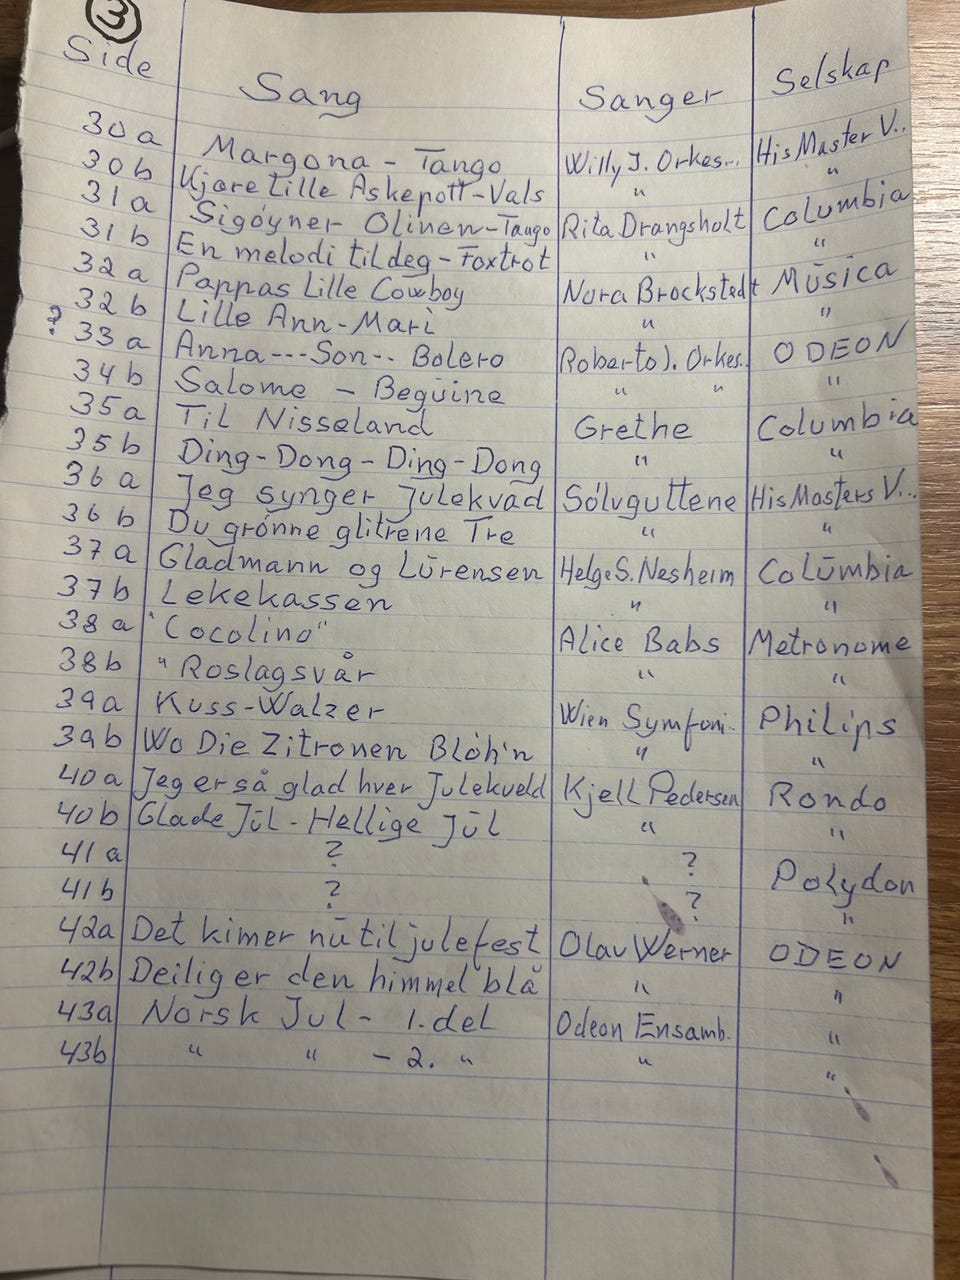 3
Side Sang Sanger Selskap
30a Margona - Tango Willy J. Orkes... His Master V..
30b Kjære Lille Askepott-Vals " "
31a Sigøyner Olinen-Tango Rita Drangsholt Columbia
31b En melodi til deg - Foxtrot " "
32a Pappas Lille Cowboy Nora Brockstedt Müsica
32b Lille Ann-Mari " "
? 33a Anna---Son-- Bolero Roberto J. Orkes.. ODEON
34b Salome - Begüine " " "
35a Til Nisseland Grethe Columbia
35b Ding-Dong-Ding-Dong " "
36a Jeg synger Julekvad Sølvguttene His Masters V...
36b Du grønne glitrene Tre " "
37a Gladmann og Lürensen Helge S. Nesheim Colümbia
37b Lekekassen " "
38a "Cocolino" Alice Babs Metronome
38b "Roslagsvår " "
39a Kuss-Walzer Wien Symfoni.. Philips
39b Wo Die Zitronen Blöh'n " "
40a Jeg er så glad hver Julekveld Kjell Pedersen Rondo
40b Glade Jül - Hellige Jül " "
41a ? ? Polydon
41b ? ? "
42a Det kimer nü til julefest Olav Werner ODEON
42b Deilig er den himmel blå " "
43a Norsk Jul - 1. del Odeon Ensamb. "
43b " " - 2. " " "